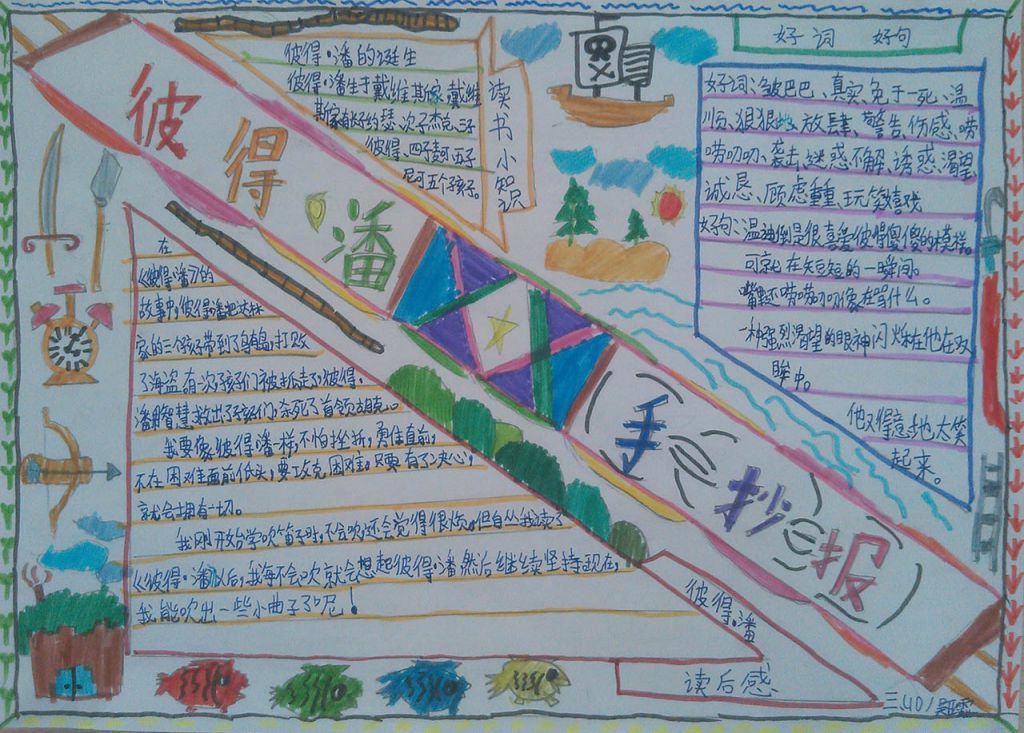 彼得·潘
手抄报
读书小知识
彼得·潘的诞生
彼得·潘生于戴维斯家,戴维
斯家有
次子杰克,三子
彼得,四子
五子
尼可五个孩子。
好词 好句
好词:皱巴巴、真实、免于一死、温
顺、狠狠地、放肆、警告、伤感、唠
唠叨叨、袭击、迷惑不解、诱惑、渴望、
诚恳、顾虑重重、玩笑嬉戏
好句:温迪倒是很喜望彼得傻傻的模样。
可就在短短的一瞬间。
嘴里不唠唠叨叨像在
什么。
一种强烈渴望的眼神闪烁在他在双
眸中。
他又得意地大笑
起来。
在
《彼得·潘》的
故事中,彼得·潘把达林
家的三个孩子带到了乌有岛,打败
了海盗,有一次孩子们被抓走了,彼得·
潘用智慧救出了孩子们,杀死了首领胡克。
我要像彼得·潘一样,不怕挫折,勇往直前,
不在困难面前低头,要攻克困难。只要有了决心,
就会拥有一切。
我刚开始学吹笛子时,不会吹还会觉得很烦。但自从我读了
《彼得·潘》以后,我每不会吹就会想起彼得·潘然后继续坚持,现在,
我能吹出一些小曲子了呢!
彼得·潘
读后感
三(10)